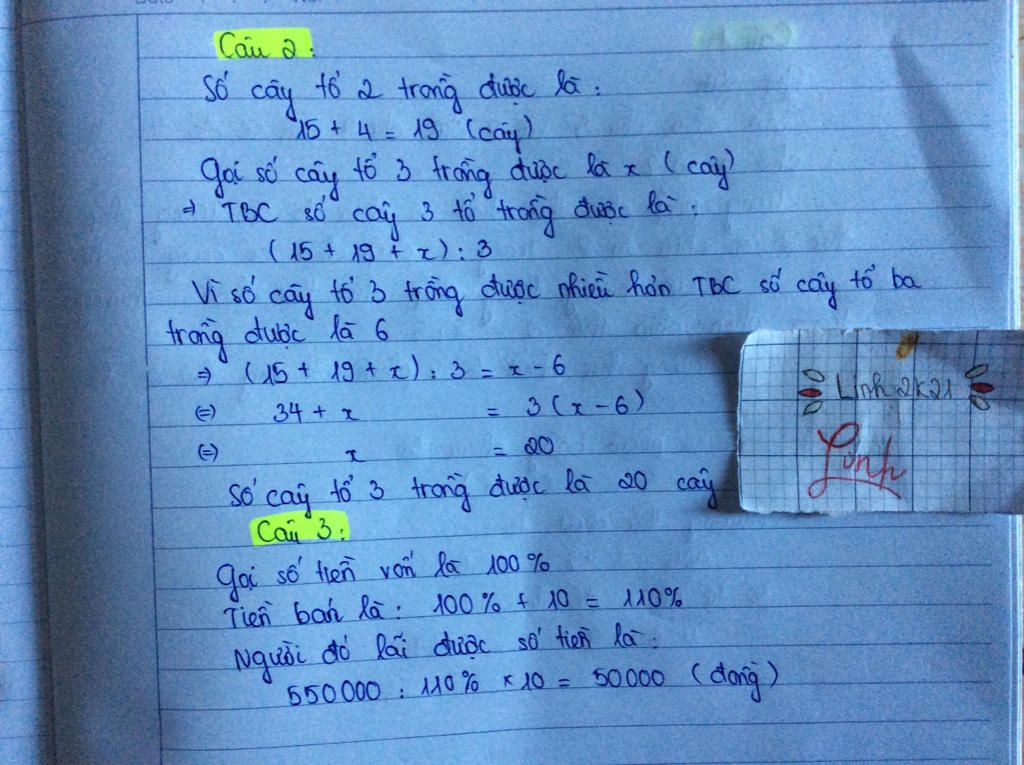 Câu 2:
Số cây tổ 2 trồng được là:
15 + 4 = 19 (cây)
Gọi số cây tổ 3 trồng được là x (cây)
⇒ TBC số cây 3 tổ trồng được là:
(15 + 19 + x) : 3
Vì số cây tổ 3 trồng được nhiều hơn TBC số cây tổ ba
trồng được là 6
⇒ (15 + 19 + x) : 3 = x - 6
(=) 34 + x = 3 (x - 6)
(=) x = 20
Số cây tổ 3 trồng được là 20 cây
Linh 2k21
Linh
Câu 3:
Gọi số tiền vốn là 100%
Tiền bán là: 100% + 10 = 110%
Người đó lãi được số tiền là:
550000 : 110% x 10 = 50000 (đồng)